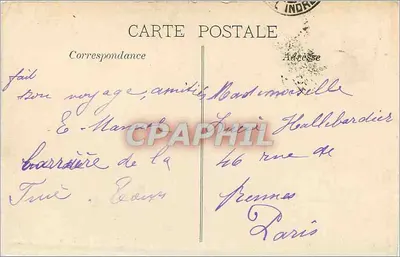 INDRE
CARTE POSTALE
Correspondance
Adresse
fait
bon voyage, amitiés
E. Manuel
barrière de la
Tours
Mademoiselle
Lucie Hallebardier
46 rue de
Rennes
Paris
CPAPHIL